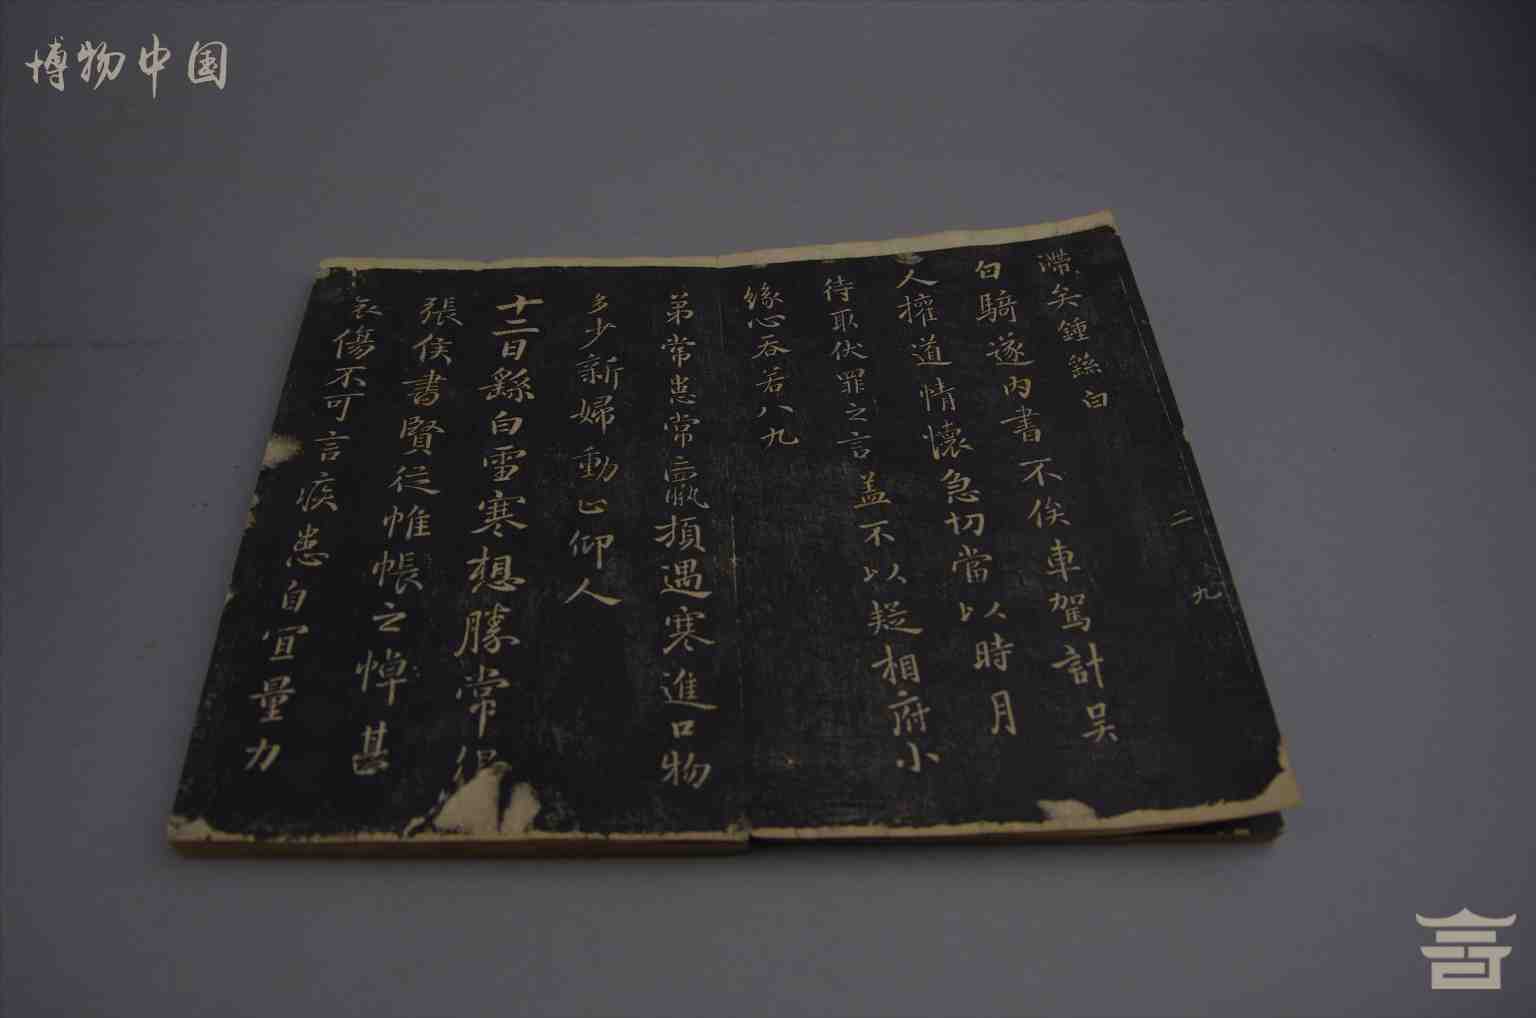 博物中国
滞矣鍾繇白
白騎遂内書不俟車駕計吴
人權道情懷急切當以時月
待取伏罪之言盖不以疑相府小
緣心吞若八九
弟常患常
損遇寒進口物
多少新婦動止仰人
十二日繇白雪寒想勝常得
張侯書賢從帷帳之悼甚
哀傷不可言疾患自宜量力
二
九